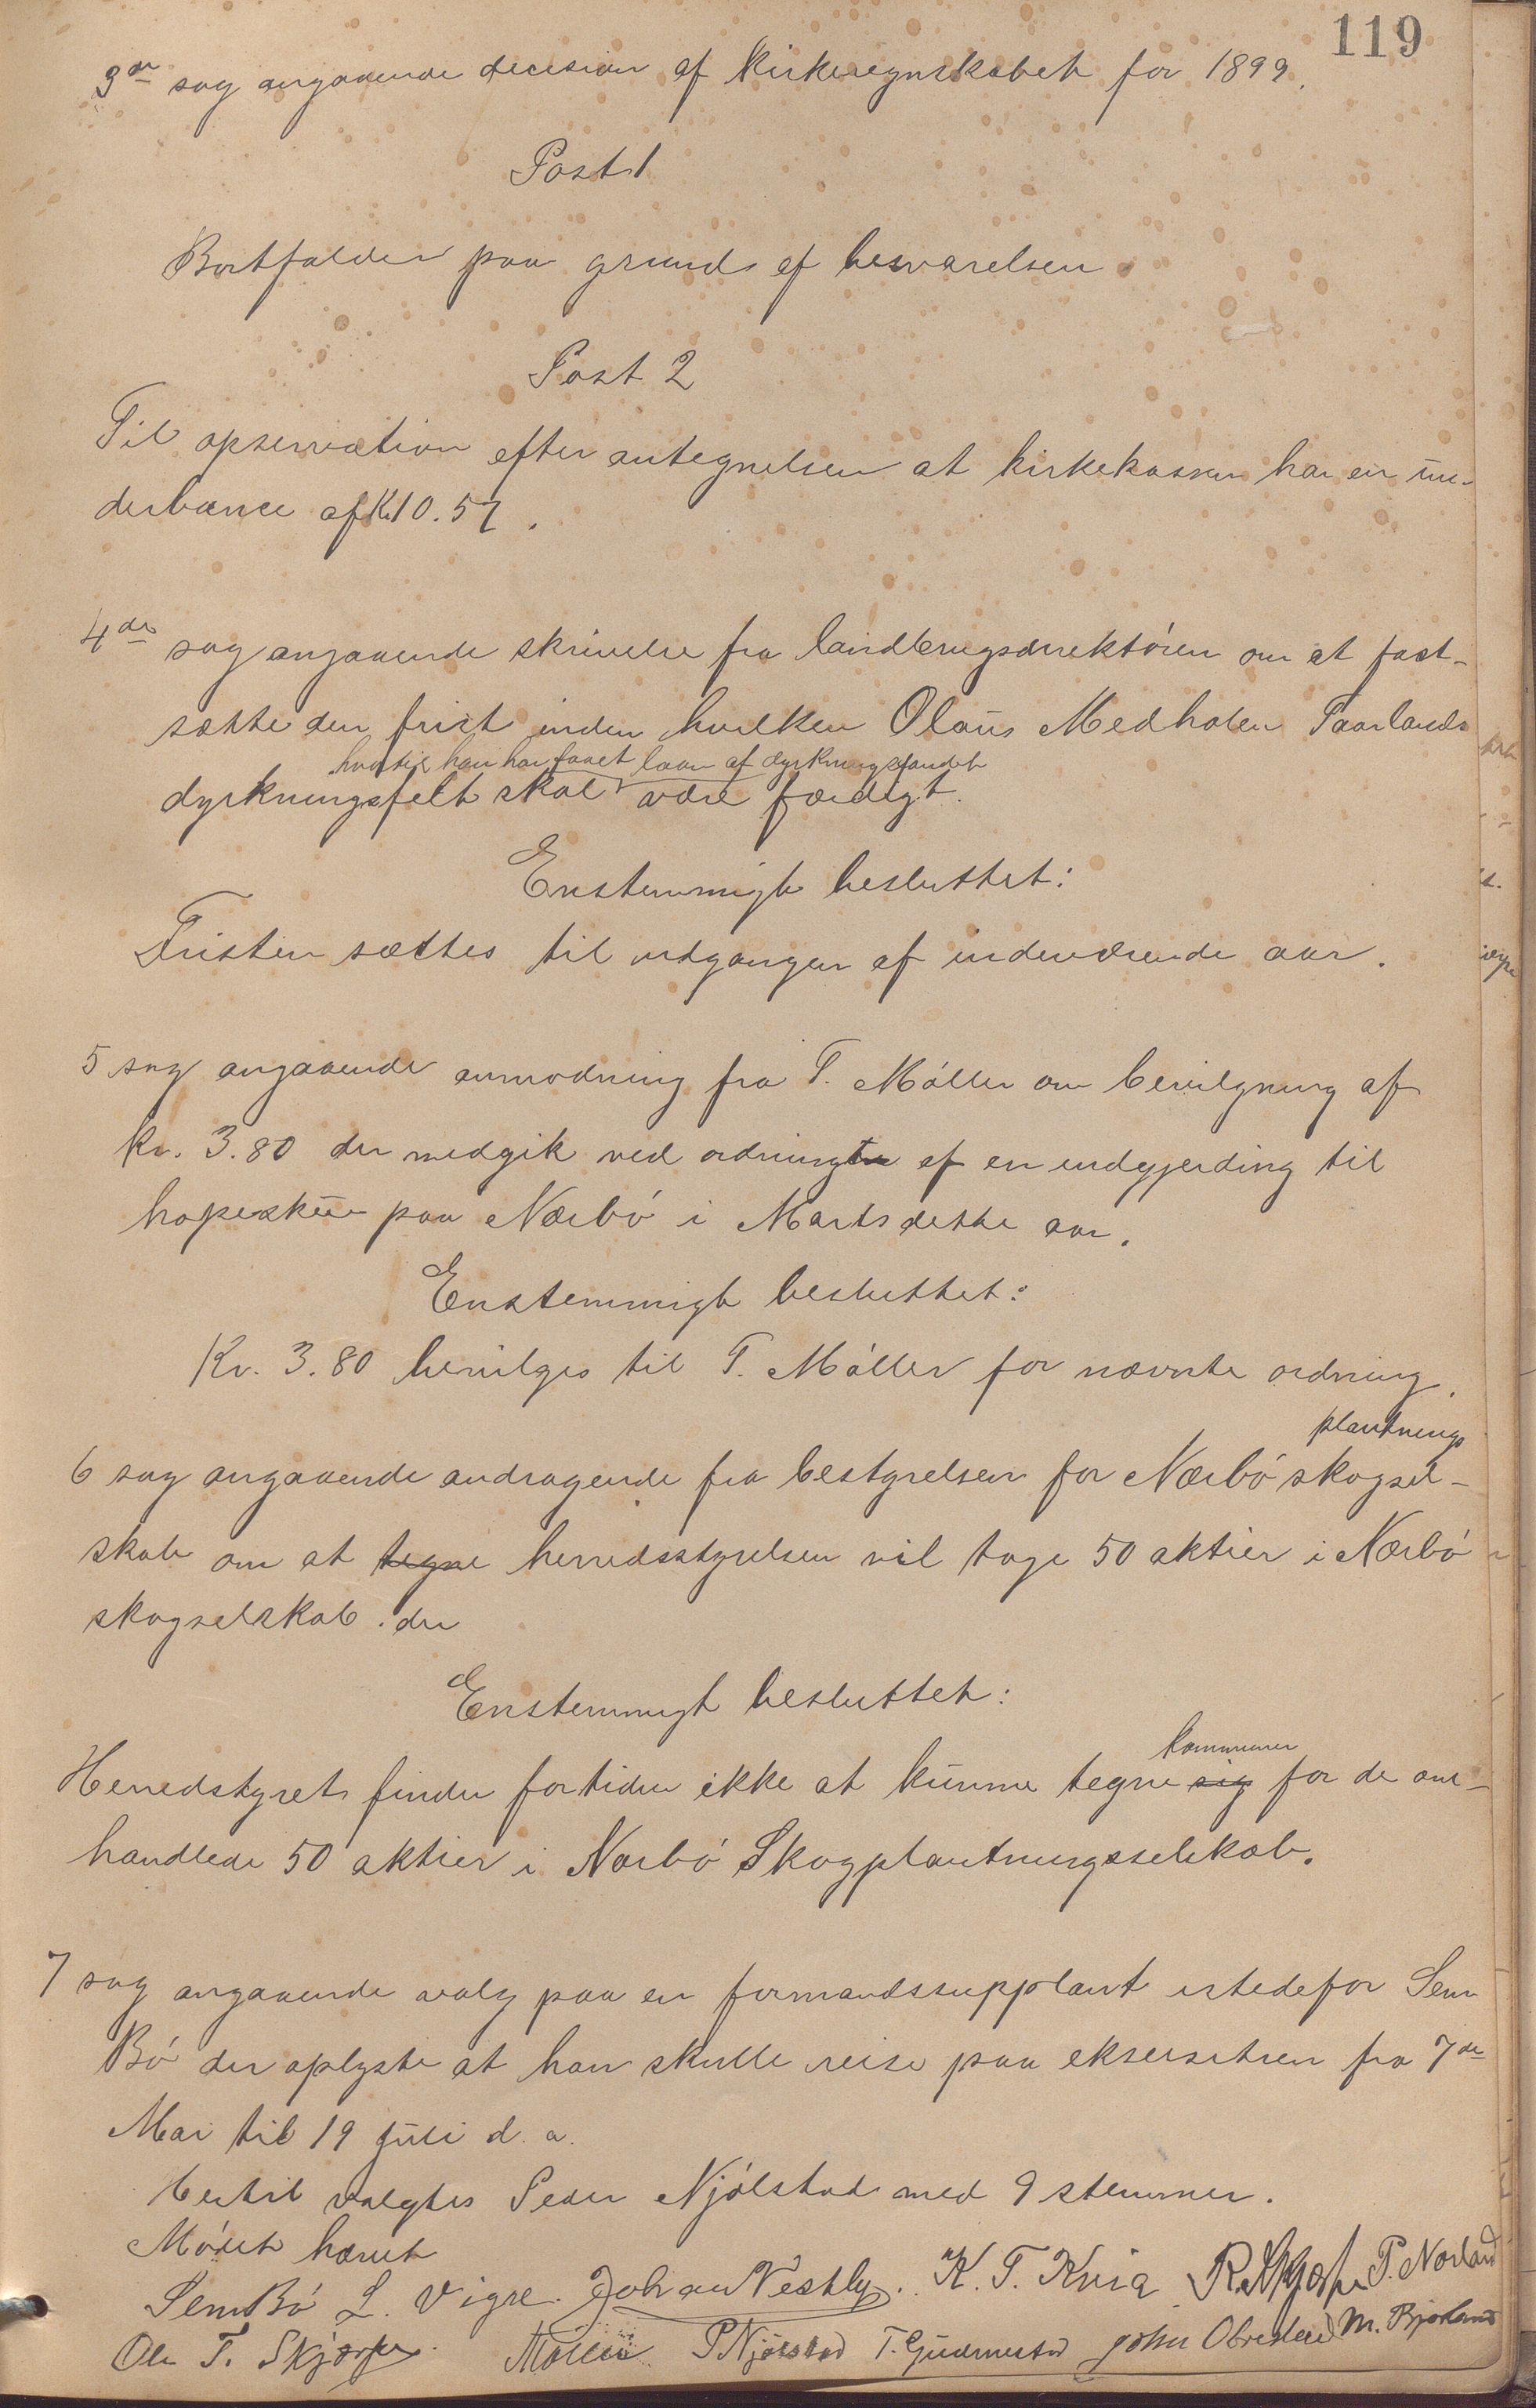 119
3die sag angaaende decision af Kirkeregnskabet for 1899.
Post 1
Bortfalder paa grund af besvarelsen
Post 2
Til opservation efter antegnelsen at kirkekassen har en un-
derbance af Kr 10.57.
4de sag angaaende skrivelse fra landbrugsdirektören om at fast-
sætte den frist inden hvilken Olaus Medholen Paarlands
hvortil han har faaet laan af dyrkningsfondet
dyrkningsfelt skal være færdigt.
Enstemmigt besluttet:
Fristen sættes til udgangen af indeværende aar.
5 sag angaaende anmodning fra T. Möller om bevilgning af
Kr. 3.80 der medgik ved ordningen af en indgjerding til
hopeskur paa Nærbö i Marts dette aar.
Enstemmigt besluttet:
Kr. 3.80 bevilges til T. Möller for nævnte ordning.
plantnings
6 sag angaaende andragende fra bestyrelsen for Nærbö skogsel-
skab om at tegne herredsstyrelsen vil tage 50 aktier i Nærbö
skogselskab. der
Enstemmigt besluttet:
kommunen
Herredstyret finder fortiden ikke at kunne tegne sig for de om-
handlede 50 aktier i Nærbö Skogplantningsselskab.
7 sag angaaende valg paa en formandssupplant istedefor Sem
Bö der oplyste at han skulle reise paa eksersitsen fra 7de
Mai til 19 Juli d. a.
Dertil valgtes Peder Njölstad med 9 stemmer.
Mödet hævet
Sem Bö L. Vigre. Johan Vestly. K. T. Kvia R. Skjærpe P. Norland
Ole T. Skjærpe. Möller P Njölstad T. Gudmestad John Obrestad M. Bjorland